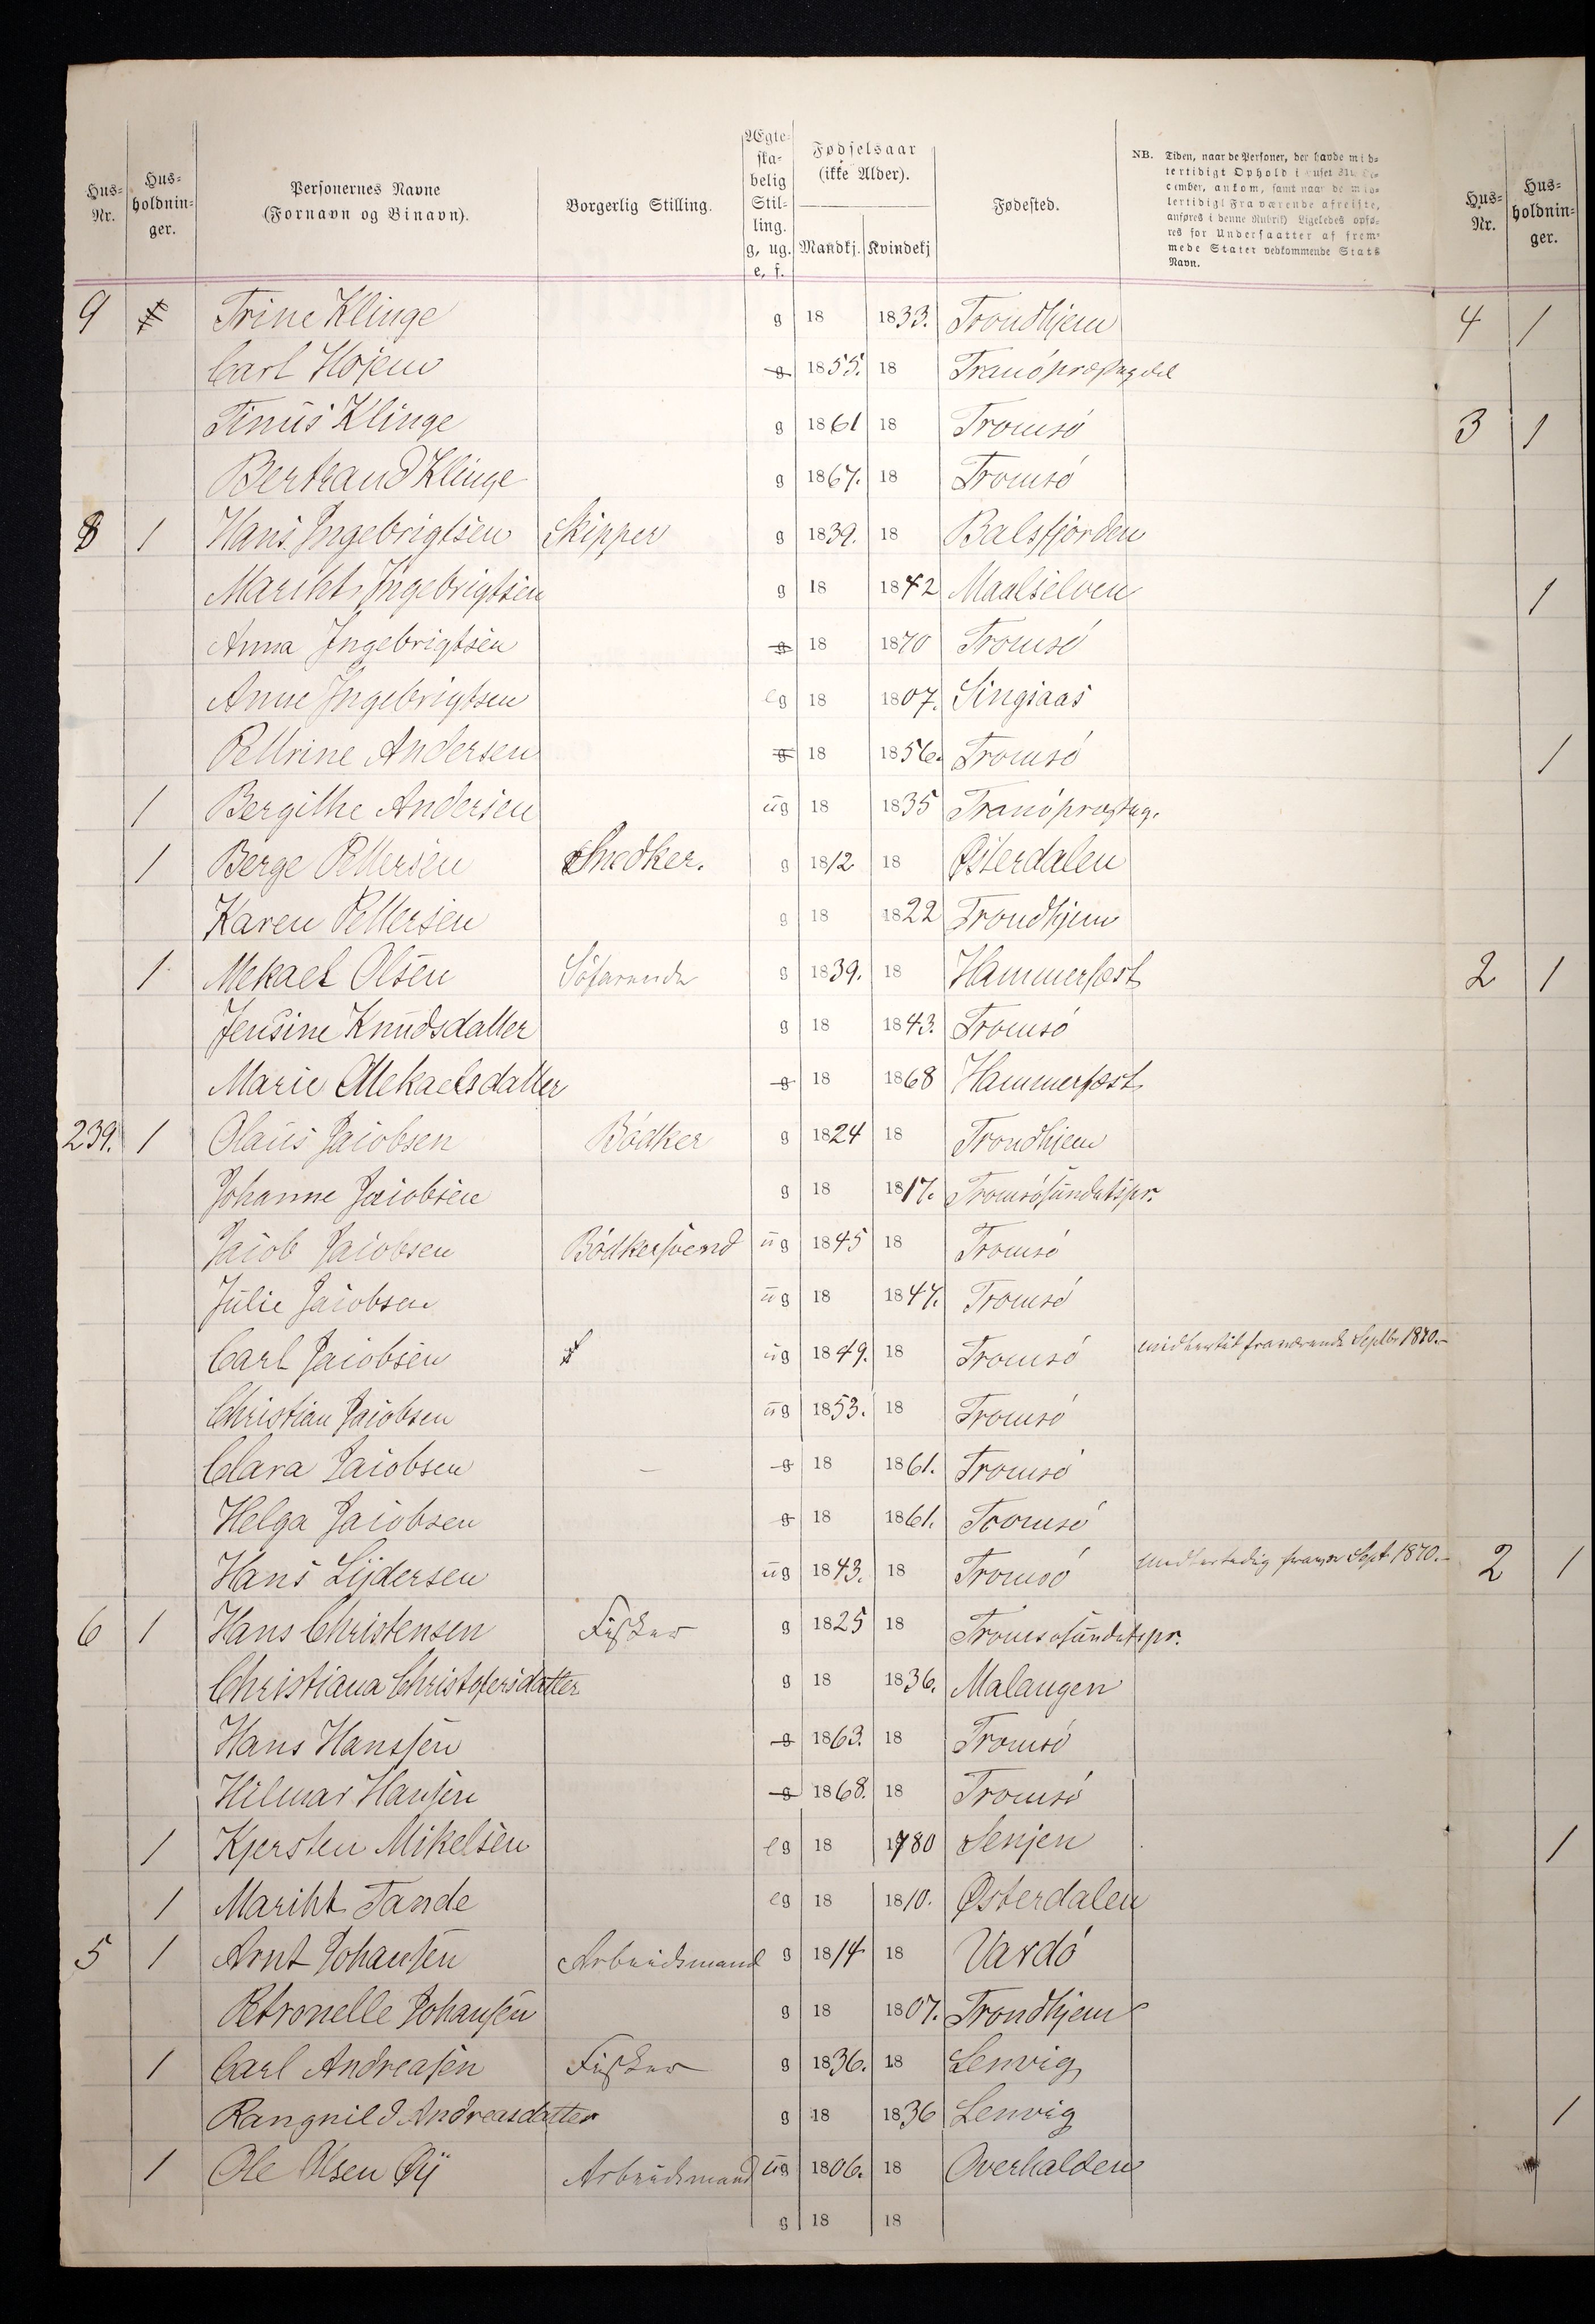 Hus-Nr. Hus-holdnin-ger. Personernes Navne (Fornavn og Binavn). Borgerlig Stilling. Ægte-ska-belig Stil-ling. g, ug. e, f. Fødselsaar (ikke Alder). Mandkj. Kvindekj Fødested. NB. Tiden, naar de Personer, der havde mid-lertidigt Ophold i Huset 31te De-cember, ankom, samt naar de mid-lertidigt Fraværende afreiste, anføres i denne Rubrik) Ligeledes opfø-res for Undersaatter af frem-mede Stater vedkommende Stats Navn. Hus-Nr. Hus-holdnin-ger.
9 Trine Klinge g 18 1833. Trondhjem 4 1
Carl Hojem g 1855. 18 Tranöpræstegdel
Tinus Klinge g 1861 18 Tromsö 3 1
Bertrand Klinge g 1867. 18 Tromsö
8 1 Hans Ingebrigtsen Skipper g 1839. 18 Balsfjorden
Mariht Ingebrigtsen g 18 1842 Maalselven 1
Anna Ingebrigtsen g 18 1870 Tromsö
Anne Ingebrigtsen eg 18 1807. Singsaas
Pettrine Andersen g 18 1856. Tromsö 1
1 Bergithe Andersen ug 18 1835 Tranöpræsteg.
1 Berge Pettersen Snedker. g 1812 18 Østerdalen
Karen Pettersen g 18 1822 Trondhjem
1 Mekael Olsen Söfarende g 1839. 18 Hammerfest 2 1
Jensine Knudsdatter g 18 1843. Tromsö
Marie Mekaelsdatter g 18 1868 Hammerfest
239. 1 Olaus Jacobsen Bödker g 1824 18 Trondhjem
Johanne Jacobsen g 18 1817. Tromsösundetspr.
Jacob Jacobsen Bödkersvend ug 1845 18 Tromsö
Julie Jacobsen ug 18 1847. Tromsö
Carl Jacobsen ug 1849. 18 Tromsö midlertit fraværende Septbr 1870.-
Christian Jacobsen ug 1853. 18 Tromsö
Clara Jacobsen - g 18 1861. Tromsö
Helga Jacobsen g 18 1861. Tromsö
Hans Lydersen ug 1843. 18 Tromsö Sept 1870.- 2 1
6 1 Hans Christensen Fisker g 1825 18 Tromsosundetspr.
Christiana Christofersdatter g 18 1836. Malangen
Hans Hanssen g 1863. 18 Tromsö
Hilmar Hansen g 1868. 18 Tromsö
1 Kjersten Mikelsen eg 18 1780 Senjen 1
1 Mariht Tande eg 18 1810. Østerdalen
5 1 Arnt Johansen Arbeidsmand g 1814 18 Vardö
Petronelle Johansen g 18 1807. Trondhjem
1 Carl Andreasen Fisker g 1836. 18 Lenvig
Rangnild Andreasdatter g 18 1836 Lenvig 1
1 Ole Olsen Øÿ Arbeidsmand ug 1806. 18 Overhalden
g 18 18